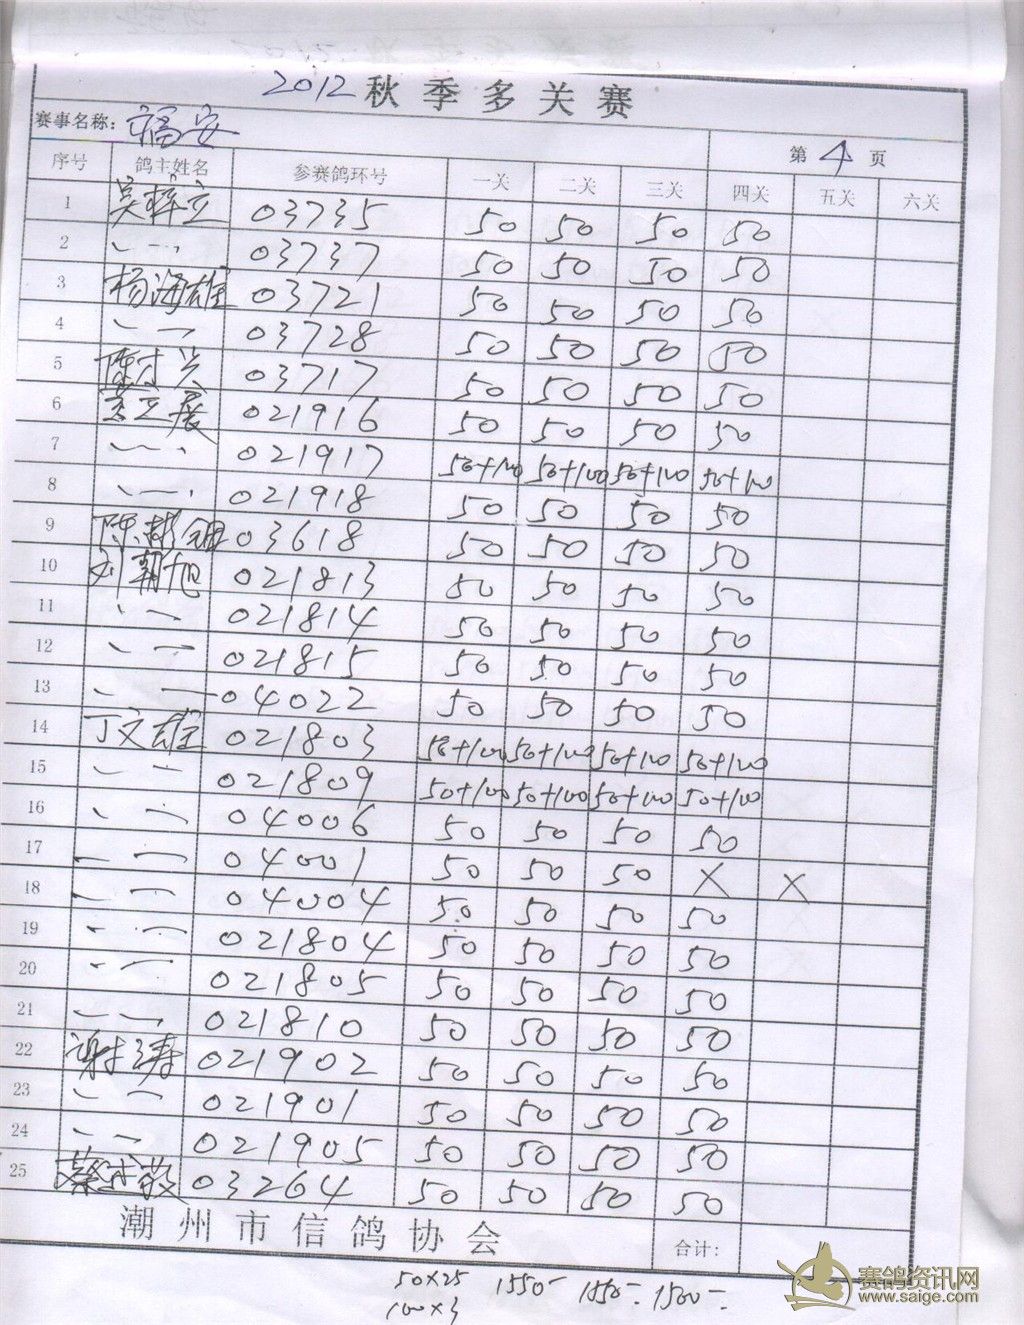 2012 秋季多关赛
赛事名称: 福安
第 4 页
序号 鸽主姓名 参赛鸽环号 一关 二关 三关 四关 五关 六关
1 03735 50 50 50 50
2 〃 03737 50 50 50 50
3 杨海雄 03721 50 50 50 50
4 〃 03728 50 50 50 50
5 03717 50 50 50 50
6 021916 50 50 50 50
7 〃 021917 50+100 50+100 50+100 50+100
8 〃 021918 50 50 50 50
9 03618 50 50 50 50
10 刘朝旭 021813 50 50 50 50
11 〃 021814 50 50 50 50
12 〃 021815 50 50 50 50
13 〃 04022 50 50 50 50
14 丁文雄 021803 50+100 50+100 50+100 50+100
15 〃 021809 50+100 50+100 50+100 50+100
16 〃 04006 50 50 50 50
17 〃 04001 50 50 50 X X
18 〃 04004 50 50 50 50
19 〃 021804 50 50 50 50
20 〃 021805 50 50 50 50
21 〃 021810 50 50 50 50
22 021902 50 50 50 50
23 〃 021901 50 50 50 50
24 〃 021905 50 50 50 50
25 03264 50 50 50 50
潮州市信鸽协会 合计:
50×25 1550- 1550- 1500-
100×3
赛鸽资讯网
www.saige.com